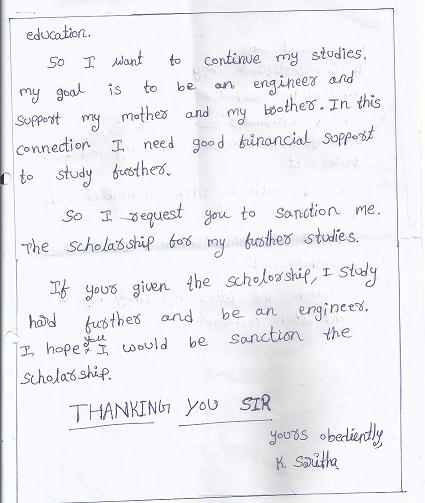 education.
So I want to continue my studies.
my goal is to be an engineer and
support my mother and my brother. In this
connection I need good financial support
to study further.
So I request you to sanction me.
The scholarship for my further studies.
If your given the scholorship, I study
hard further and be an engineer.
I, hope you I, would be sanction the
scholarship.
THANKING YOU SIR
yours obediently,
K. Saritha